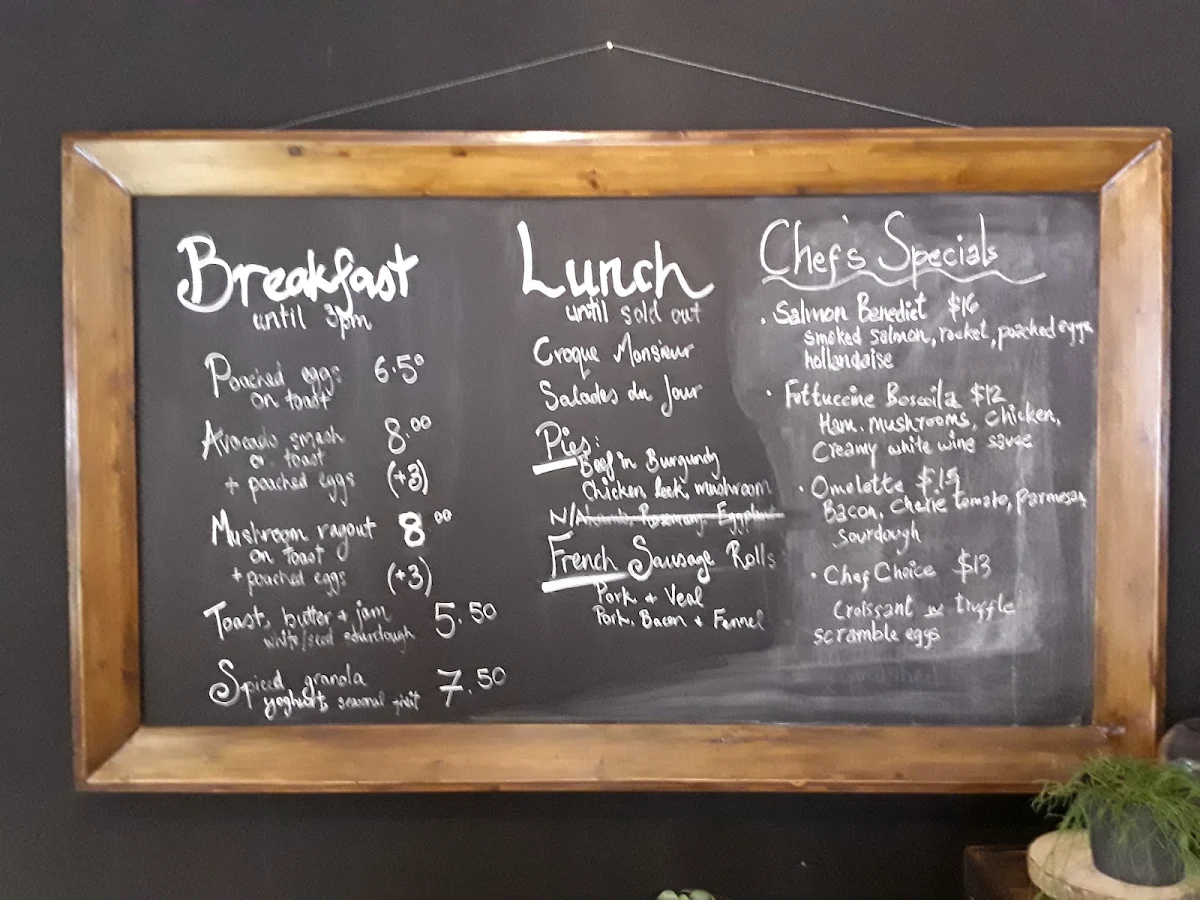 Breakfast
until 3pm
Poached eggs 6.50
on toast
Avocado smash 8.00
on toast
+ poached eggs (+3)
Mushroom ragout 8.00
on toast
+ poached eggs (+3)
Toast, butter + jam 5.50
white/seed sourdough
Spiced granola 7.50
yoghurt, seasonal fruit
Lunch
until sold out
Croque Monsieur
Salades du Jour
Pies:
Beef in Burgundy
Chicken, leek, mushroom
N/A Rosemary, Eggplant
French Sausage Rolls:
Pork + Veal
Pork, Bacon + Fennel
Chef's Specials
. Salmon Benedict $16
smoked salmon, rocket, poached eggs
hollandaise
. Fettuccine Boscaila $12
Ham, mushrooms, chicken,
Creamy white wine sauce
. Omelette $15
Bacon, cherie tomato, parmesan,
sourdough
. Chef Choice $13
Croissant w truffle
scramble eggs